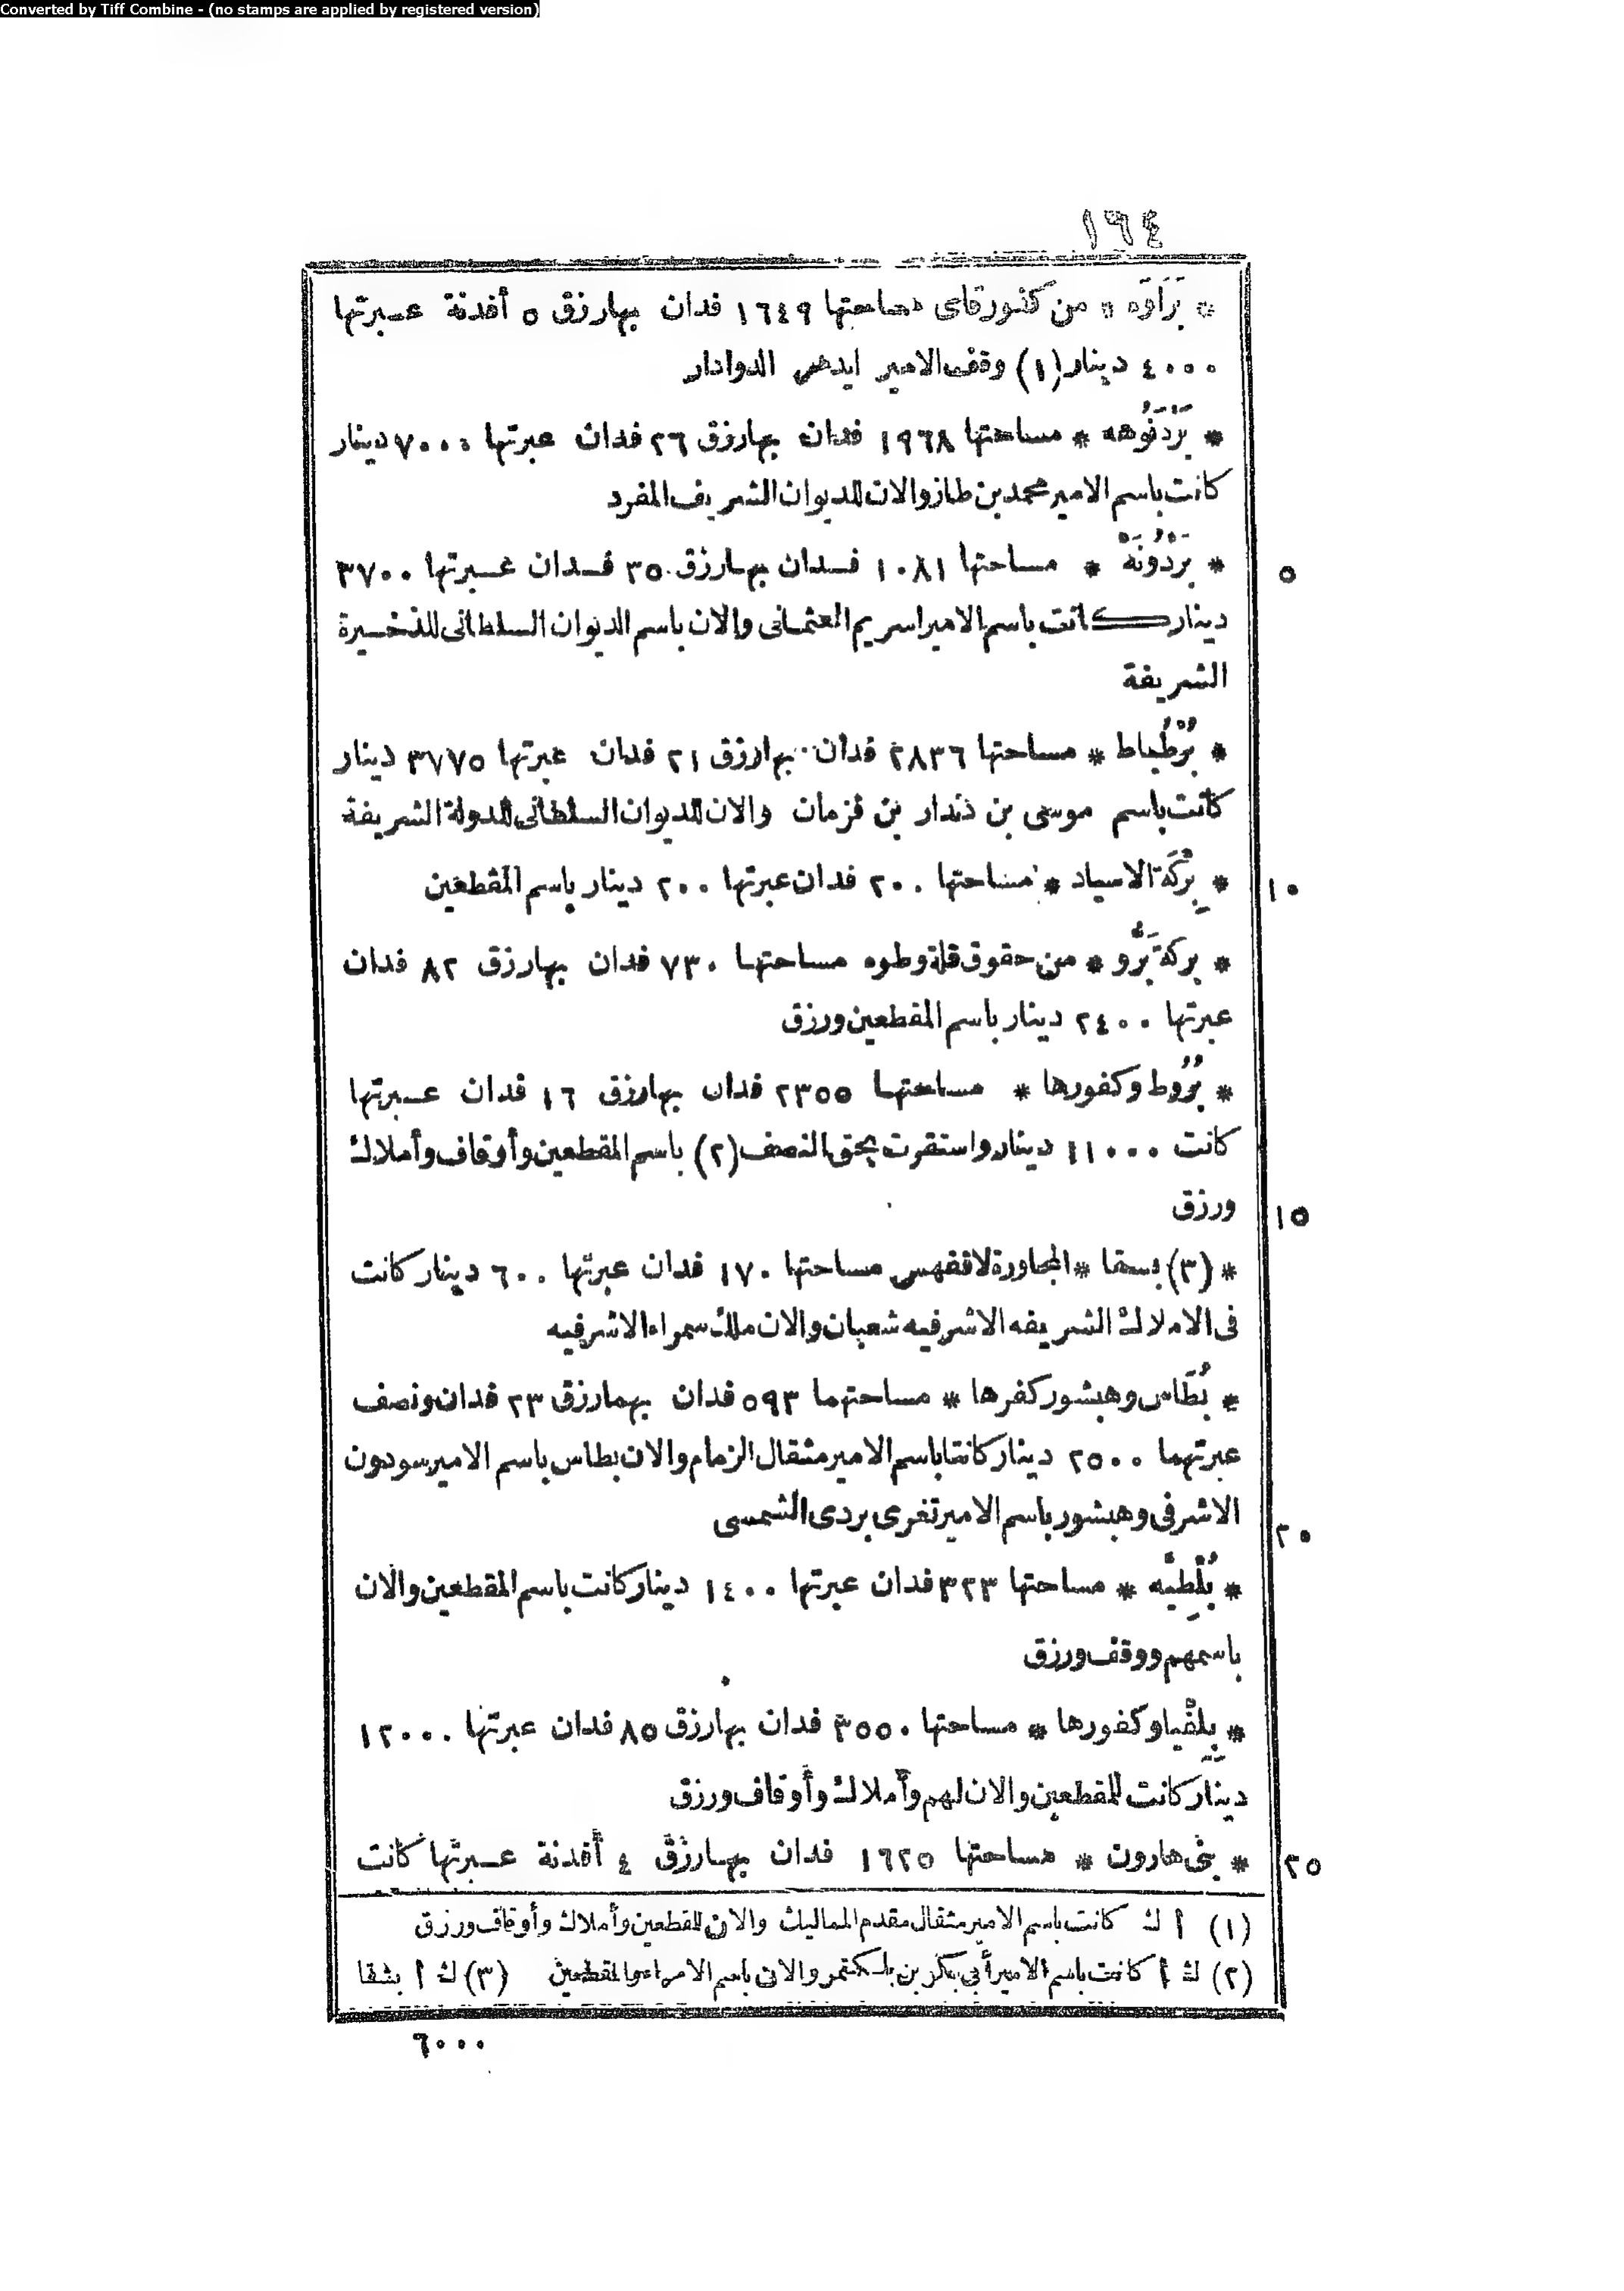 Converted by Tiff Combine - (no stamps are applied by registered version)
١٦٤
* بَرَاوَه * من كفور قاى مساحتها ١٦٤٩ فدان بها رزق ٥ أفدنة عـبرتها
٤٠٠٠ دينار (١) وقف الامير ايدمر الدوادار
* بَرْدَنُوهه * مساحتها ١٩٦٨ فدان بها رزق ٢٦ فدان عبرتها ٧٠٠٠ دينار
كانت باسم الامير محمد بن طاز والان للديوان الشريف المفرد
* بَرْدُونَةْ * مساحتها ١٠٨١ فـدان بهـا رزق ٣٥ فـدان عـبرتها ٣٧٠٠ ٥
دينار كانت باسم الامير اسريم العثمانى والان باسم الديوان السلطانى للذخـيرة
الشريفة
* بُرْطُباط * مساحتها ٢٨٣٦ فدان بها رزق ٢١ فدان عبرتها ٣٧٧٥ دينار
كانت باسم موسى بن دندار بن قزمان والان للديوان السلطانى للدولة الشريفة
* بِرْكَة الاسياد * مساحتها ٢٠٠ فدان عبرتها ٢٠٠ دينار باسم المقطعين ١٠
* بركة بَرَّو * من حقوق قلة وطوه مساحتها ٧٣٠ فدان بها رزق ٨٢ فدان
عبرتها ٢٤٠٠ دينار باسم المقطعين ورزق
* بُرُوط وكفورها * مساحتهـا ٢٣٥٥ فدان بها رزق ١٦ فدان عـبرتها
كانت ١١٠٠٠ دينار واستقرت بحق النصف (٢) باسم المقطعين وأوقاف وأملاك
ورزق ١٥
* (٣) بسقا * المجاورة لاقفهس مساحتها ١٧٠ فدان عبرتها ٦٠٠ دينار كانت
فى الاملاك الشريفه الاشرفيه شعبان والان ملك سمراء الاشرفيه
* بُطَّاس وهبشور كفرها * مساحتهما ٥٩٣ فدان بهما رزق ٢٣ فدان ونصف
عبرتهما ٢٥٠٠ دينار كانتا باسم الامير مثقال الزمام والان بطاس باسم الامير سودون
الاشرفى وهبشور باسم الامير تغرى بردى الشمسى ٢٠
* بُلْطِيَّه * مساحتها ٣٢٣ فدان عبرتها ١٤٠٠ دينار كانت باسم المقطعين والان
باسمهم ووقف ورزق
* بِلِفْيا وكفورها * مساحتها ٣٥٥٠ فدان بها رزق ٨٥ فدان عبرتها ١٢٠٠٠
دينار كانت للمقطعين والان لهم وأملاك وأوقاف ورزق
* بنى هارون * مساحتها ١٦٢٥ فدان بهـا رزق ٤ أفدنة عـبرتها كانت ٢٥
(١) أ ك كانت باسم الامير مثقال مقدم المماليك والان للمقطعين وأملاك وأوقاف ورزق
(٢) ك أ كانت باسم الامير أبى بكر بن بلكتمر والان باسم الامراء والمقطعين (٣) ك أ بشقا
٦٠٠٠